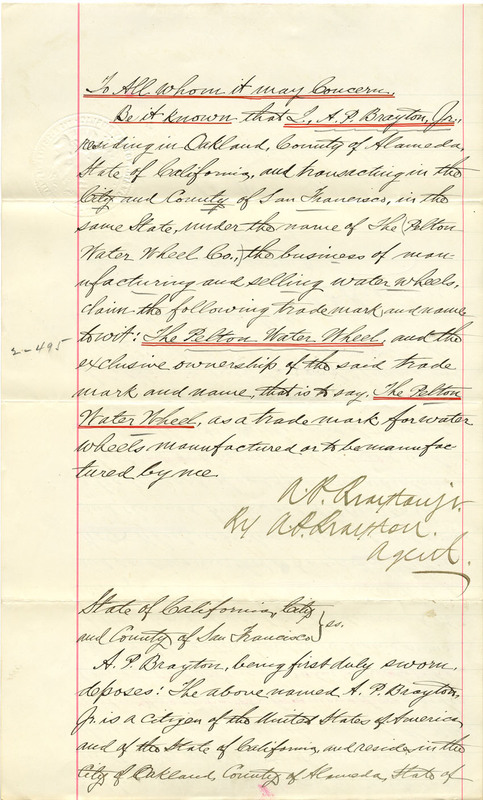 To All whom it may Concern,
Be it known that I, A. P. Brayton, Jr.,
residing in Oakland, County of Alameda,
State of California, and transacting in the
City and County of San Francisco, in the
same State, under the name of The (Pelton
Water Wheel Co.,) the business of man-
ufacturing and selling water wheels,
claim the following trade mark and name
to wit: The Pelton Water Wheel and the
2-495
exclusive ownership of the said trade
mark and name, that is to say, The Pelton
Water Wheel, as a trade mark for water
wheels manufactured or to be manufac-
tured by me
A. P. Brayton jr.
By A. P. Brayton.
Agent.
State of California, City
and County of San Francisco } ss.
A. P. Brayton, being first duly sworn,
deposes: The above named A. P. Brayton,
Jr. is a citizen of the United States of America,
and of the State of California, and resides in the
City of Oakland, County of Alameda, State of